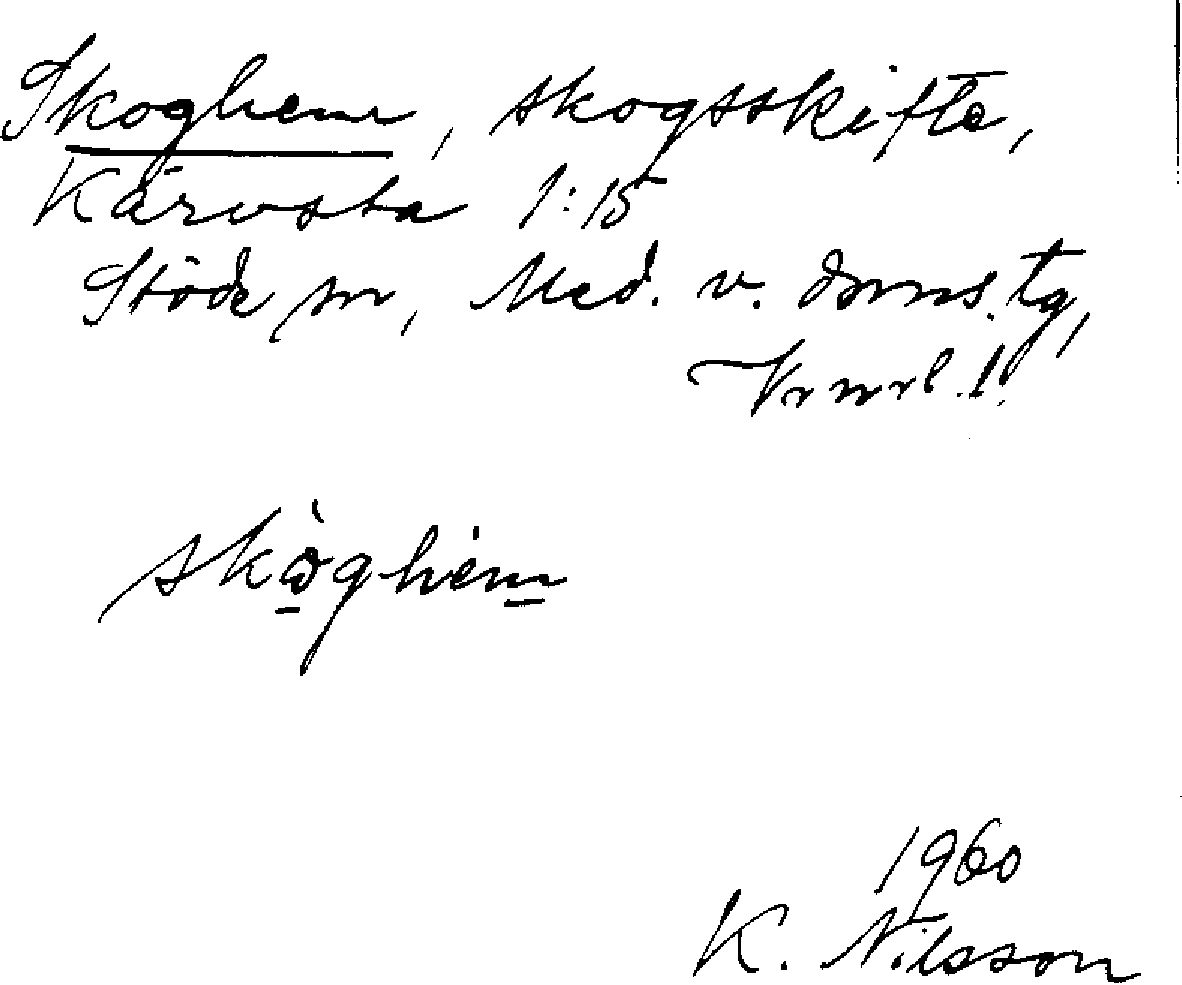 Skoghem, skogsskifte,
Kärvsta 1:15
Stöde sn, Med. v. doms. tg,
Vrnrl. l.
skòghem
1960
K. Nilsson